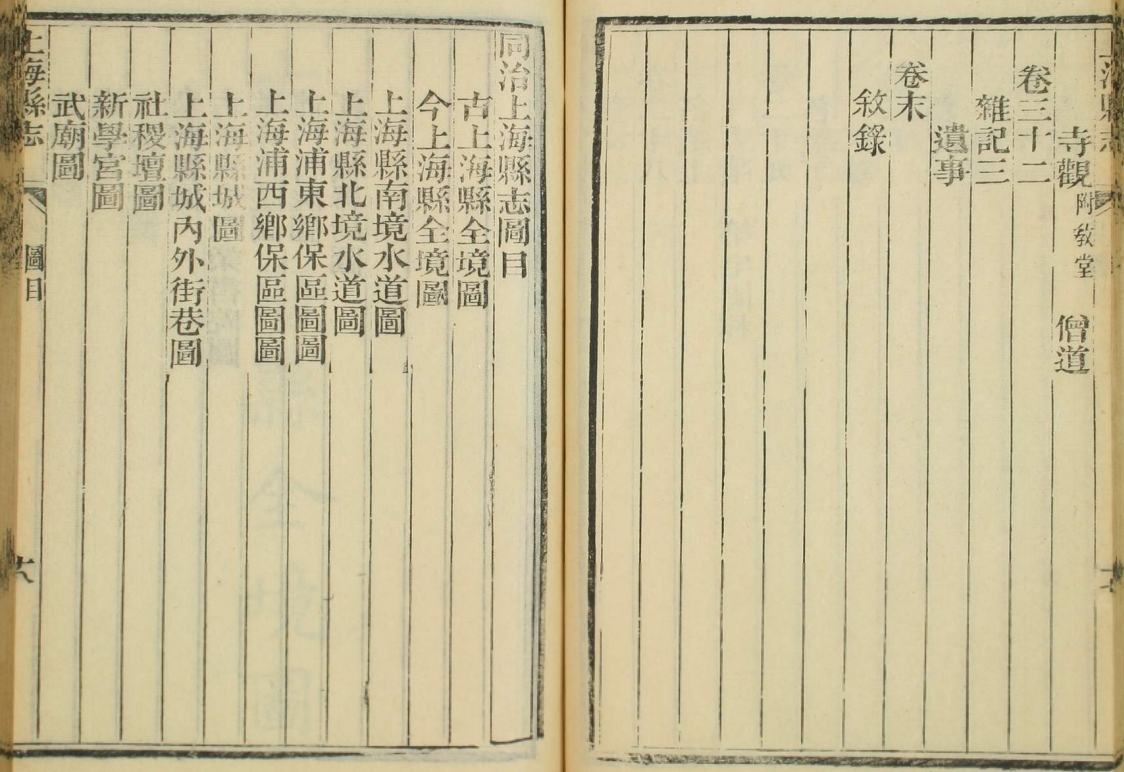 上海縣志
寺觀附敎堂 僧道
卷三十二
雜記三
遺事
卷末
敘錄
同治上海縣志圖目
古上海縣全境圖
今上海縣全境圖
上海縣南境水道圖
上海縣北境水道圖
上海浦東鄉保區圖圖
上海浦西鄉保區圖圖
上海縣城圖
上海縣城內外街巷圖
社稷壇圖
新學宮圖
武廟圖
上海縣志 圖目